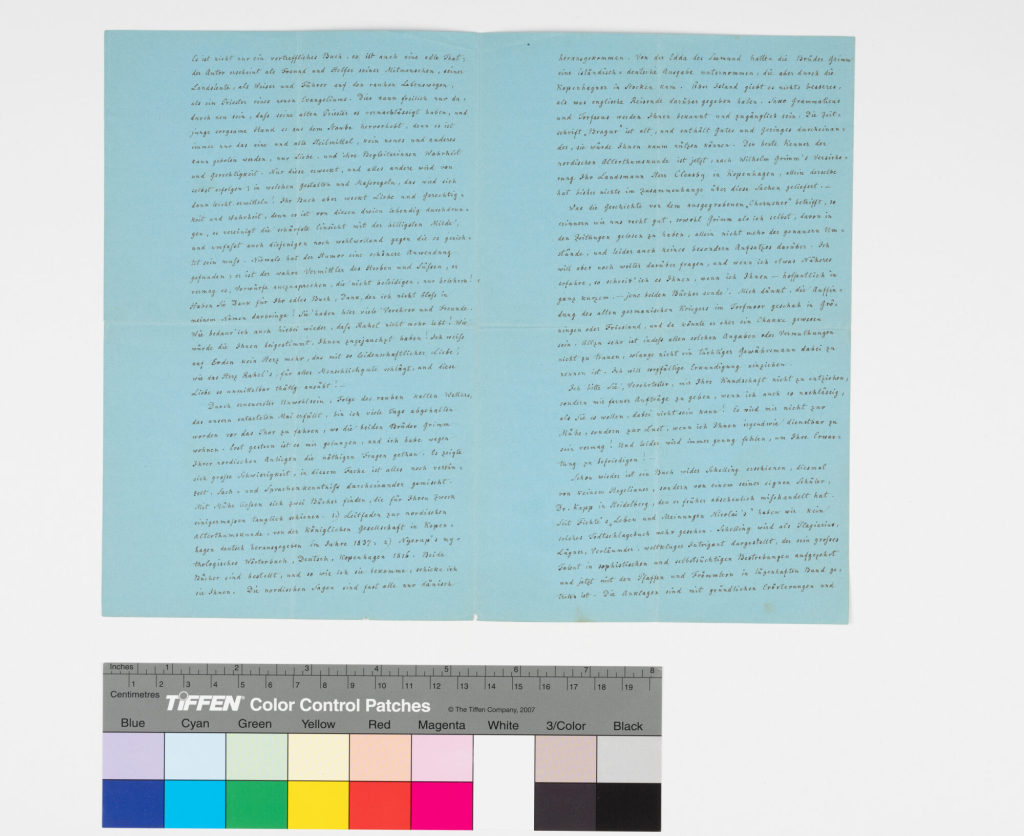 Es ist nicht nur ein vortreffliches Buch, es ist auch eine edle That;
der Autor erscheint als Freund und Helfer seiner Mitmenschen, seiner
Landsleute, als Weiser und Führer auf den rauhen Lebenswegen,
als ein Priester eines neuen Evangeliums. Dies kann freilich nur da-
durch neu sein, daß seine alten Priester es vernachlässigt haben, und
junge sorgsame Hand es aus dem Staube hervorhebt, denn es ist
immer nur das eine und alte Heilmittel, kein neues und anderes
kann geboten werden, nur Liebe, und ihre Begleiterinnen Wahrheit
und Gerechtigkeit. Nur diese erweckt, und alles andere wird von
selbst erfolgen; in welchen Gestalten und Maßregeln, das wird sich
dann leicht ermitteln! Ihr Buch aber weckt Liebe und Gerechtig-
keit und Wahrheit, denn es ist von diesen dreien lebendig durchdrun-
gen, es vereinigt die schärfste Einsicht mit der billigsten Milde,
und umfaßt auch diejenigen noch wohlwollend gegen die es gerich-
tet sein muß. Niemals hat der Humor eine schönere Anwendung
gefunden; er ist der wahre Vermittler des Herben und Süßen, er
vermag es, Vorwürfe auszusprechen, die nicht beleidigen, nur belehren!
Haben Sie Dank für Ihr edles Buch, Dank, den ich nicht bloß in
meinem Namen darbringe! Sie haben hier viele Verehrer und Freunde.
Wie bedaur' ich auch hiebei wieder, daß Rahel nicht mehr lebt! Wie
würde die Ihnen beigestimmt, Ihnen zugejauchzt haben! Ich weiß
auf Erden kein Herz mehr, das mit so leidenschaftlicher Liebe,
wie das Herz Rahel's, für alles Menschlichgute schlägt, und diese
Liebe so unmittelbar thätig ausübt! —
Durch erneuertes Unwohlsein, Folge des rauhen kalten Wetters,
das unsern entarteten Mai erfüllt, bin ich viele Tage abgehalten
worden vor das Thor zu fahren, wo die beiden Brüder Grimm
wohnen. Erst gestern ist es mir gelungen, und ich habe wegen
Ihrer nordischen Anliegen die nöthigen Fragen gethan. Es zeigte
sich große Schwierigkeit, in diesem Fache ist alles noch verein-
zelt, Sach- und Sprachenkenntniß durcheinander gemischt.
Mit Mühe ließen sich zwei Bücher finden, die für Ihren Zweck
einigermaßen tauglich schienen. 1) Leitfaden zur nordischen
Alterthumskunde, von der Königlichen Gesellschaft in Kopen-
hagen deutsch herausgegeben im Jahre 1837; 2) Nyerup's my-
thologisches Wörterbuch, Deutsch, Kopenhagen 1816. Beide
Bücher sind bestellt, und so wie ich sie bekomme, schicke ich
sie Ihnen. Die nordischen Sagen sind fast alle nur dänisch
herausgekommen. Von der Edda des Saemund hatten die Brüder Grimm
eine isländisch-deutsche Ausgabe unternommen, die aber durch die
Kopenhagner in Stocken kam. Über Island giebt es nichts besseres,
als was englische Reisende darüber gegeben haben. Saxo Grammaticus
und Torfaeus werden Ihnen bekannt und zugänglich sein. Die Zeit-
schrift „Bragur" ist alt, und enthält Gutes und Geringes durcheinan-
der, sie würde Ihnen kaum nützen können. Der beste Kenner der
nordischen Alterthumskunde ist jetzt, nach Wilhelm Grimm's Versiche-
rung Ihr Landsmann Herr Cleasby in Kopenhagen, allein derselbe
hat bisher nichts im Zusammenhange über diese Sachen geliefert. —
Was die Geschichte von dem ausgegrabenen „Cherusker" betrifft, so
erinnern wir uns recht gut, sowohl Grimm als ich selbst, davon in
den Zeitungen gelesen zu haben, allein nicht mehr der genauern Um-
stände, und leider auch keines besondern Aufsatzes darüber. Ich
will aber noch weiter darüber fragen, und wenn ich etwas Näheres
erfahre, so schreib' ich es Ihnen, wenn ich Ihnen — hoffentlich in
ganz kurzem — jene beiden Bücher sende. Mich dünkt, die Auffin-
dung des alten germanischen Kriegers im Torfmoor geschah in Grö-
ningen oder Friesland, und da könnte es eher ein Chauke gewesen
sein. Allzu sehr ist indeß allen solchen Angaben oder Vermuthungen
nicht zu trauen, solange nicht ein tüchtiger Gewährsmann dabei zu
nennen ist. Ich will sorgfältige Erkundigung einziehen.
Ich bitte Sie, Verehrtester, mir Ihre Kundschaft nicht zu entziehen,
sondern mir ferner Aufträge zu geben, wenn ich auch so nachlässig,
als Sie es wollen, dabei nicht sein kann! Es wird mir nicht zur
Mühe, sondern zur Lust, wenn ich Ihnen irgendwie dienstbar zu
sein vermag! Und leider wird immer genug fehlen, um Ihre Erwar-
tung zu befriedigen! —
Schon wieder ist ein Buch wider Schelling erschienen, diesmal
von keinem Hegelianer, sondern von einem seiner eignen Schüler,
Dr. Kapp in Heidelberg, den er früher abscheulich mißhandelt hat.
Seit Fichte's „Leben und Meinungen Nicolai's" haben wir kein
solches Todtschlagebuch mehr gesehen. Schelling wird als Plagiarius,
Lügner, Verläumder, weltkluger Intrigant dargestellt, der sein großes
Talent in sophistischen und selbstsüchtigen Bestrebungen aufgezehrt
und jetzt mit den Pfaffen und Frömmlern in lügenhaften Bund ge-
treten ist. Die Anklagen sind mit gründlichen Erörterungen und
Inches 1 2 3 4 5 6 7 8
Centimetres 1 2 3 4 5 6 7 8 9 10 11 12 13 14 15 16 17 18 19
TIFFEN Color Control Patches © The Tiffen Company, 2007
Blue Cyan Green Yellow Red Magenta White 3/Color Black